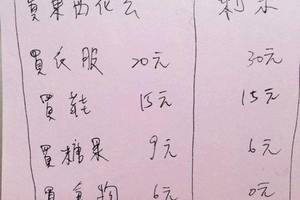 買東西花去 剩余
買衣服 20元 30元
買鞋 15元 15元
買糖果 9元 6元
買食物 6元 0元